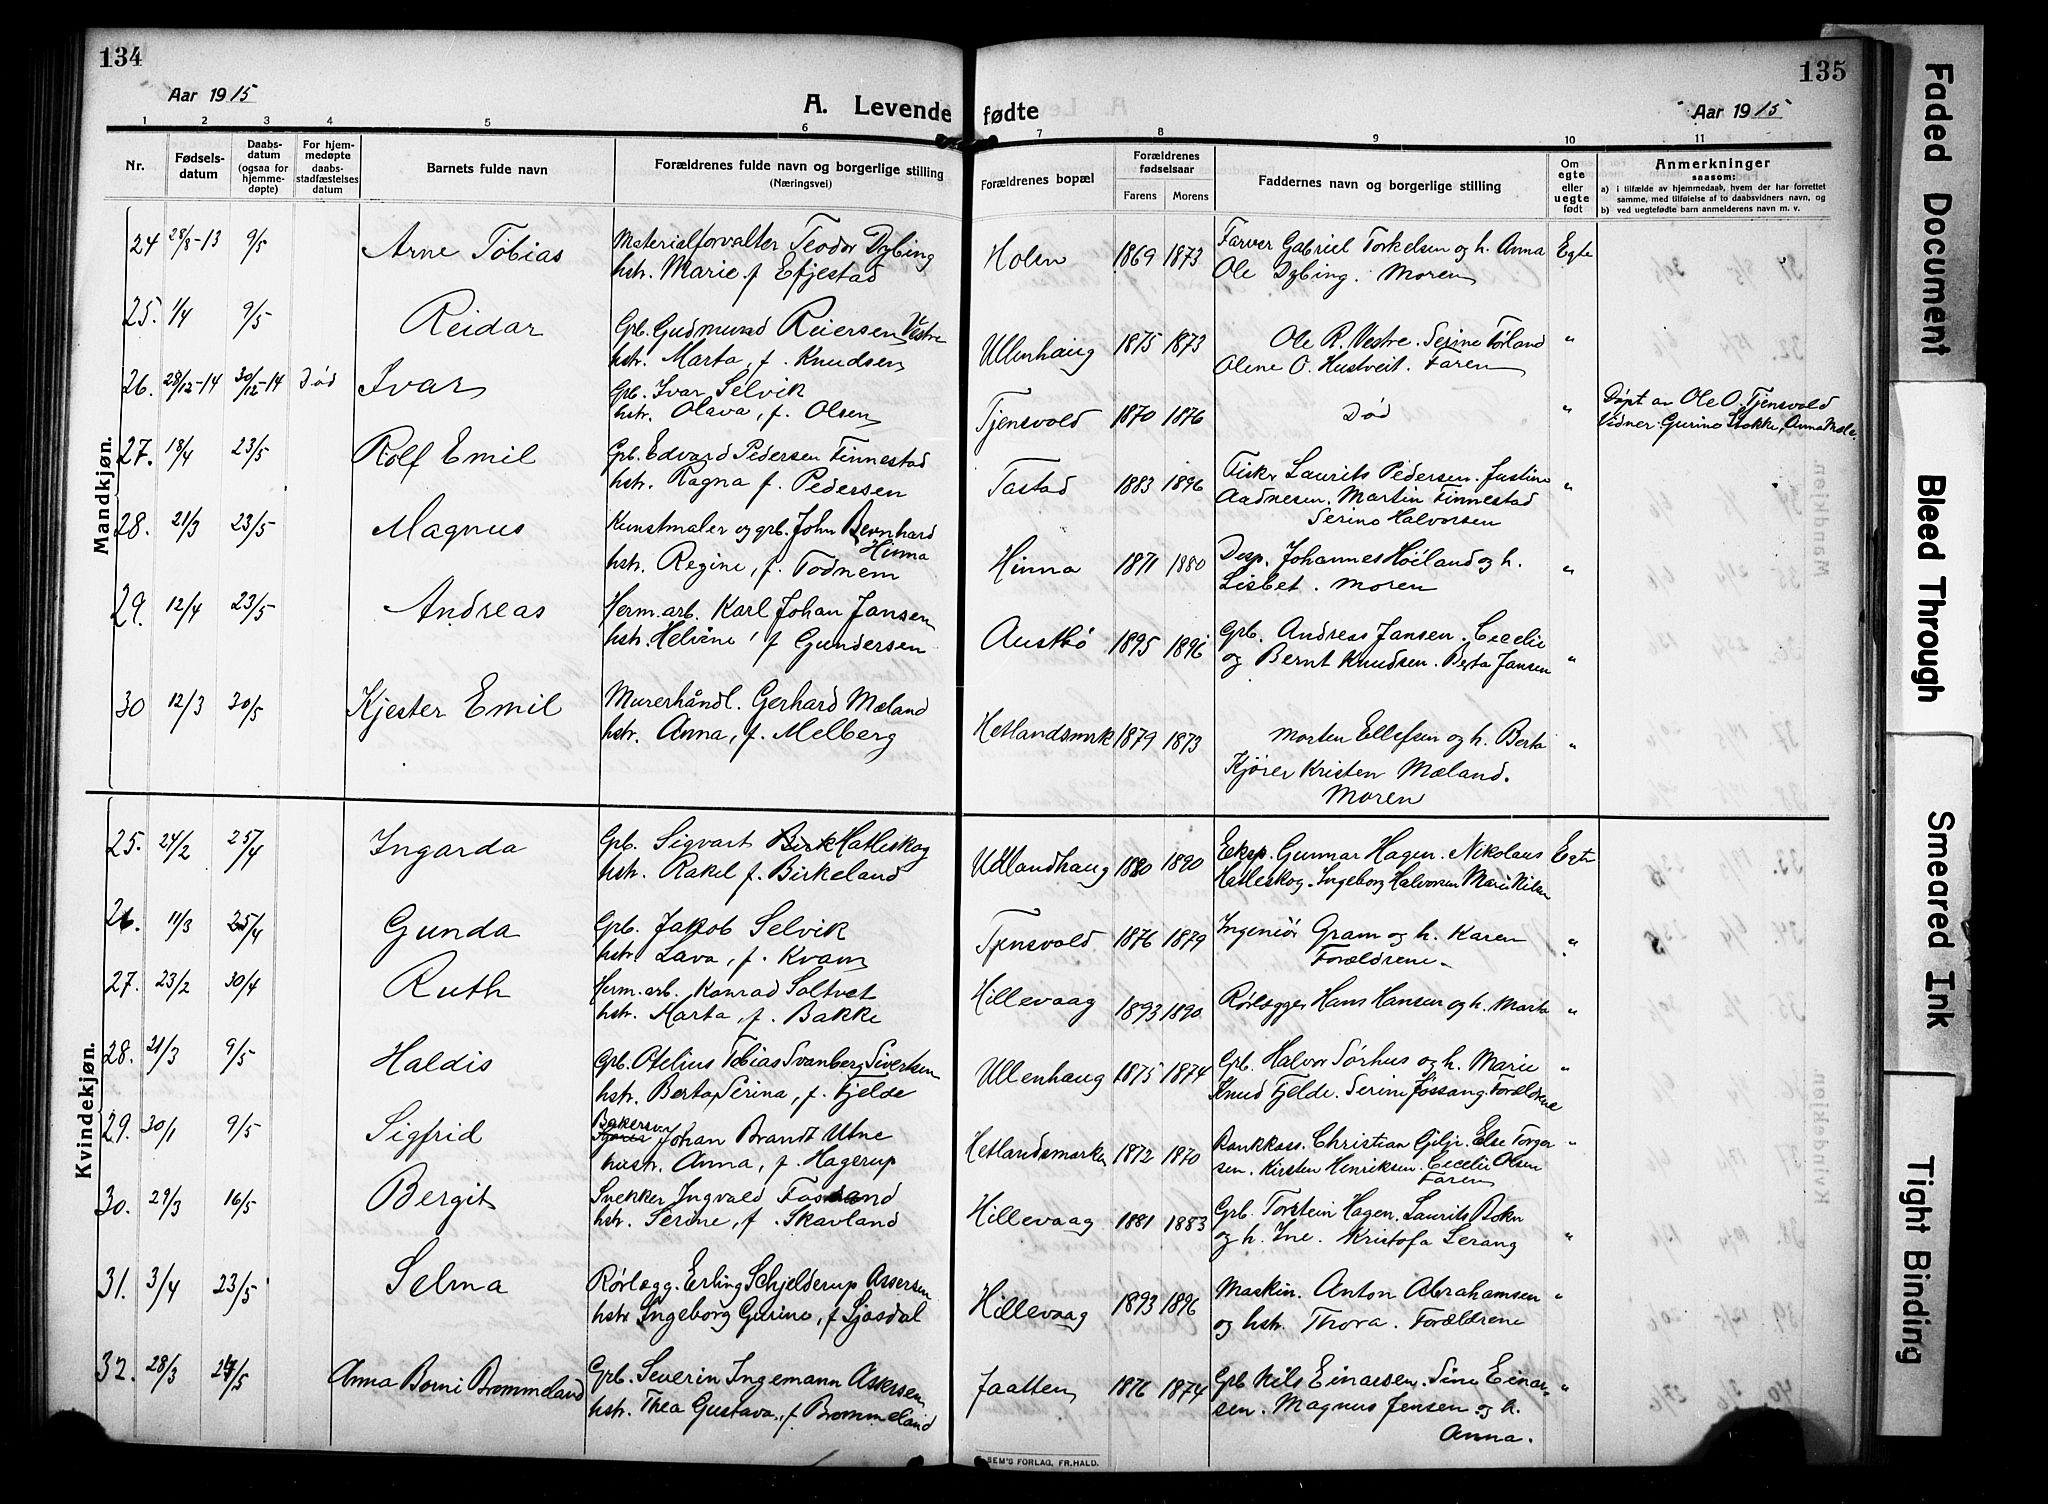 134
135
Aar 1915
A. Levende fødte
Aar 1915
1 2 3 4 5 6 7 8 9 10 11
Nr.
Fødselsdatum
Daabsdatum (ogsaa for hjemmedøpte)
For hjemmedøpte daabsstadfæstelses datum
Barnets fulde navn
Forældrenes fulde navn og borgerlige stilling
(Næringsvei)
Forældrenes bopæl
Forældrenes fødselsaar
Farens Morens
Faddernes navn og borgerlige stilling
Om egte eller uegte født
Anmerkninger
saasom:
a) i tilfælde av hjemmedaab, hvem der har forrettet samme, med tilføielse af to daabsvidners navn, og
b) ved uegtefødte barn anmelderens navn m. v.
Mandkjøn.
24 28/8-13 9/5 Arne Tobias Materialforvalter Teodor Dybing Holen 1869 1873 Farver Gabriel Torkelsen og h. Anna Egte
hstr. Marie f. Efjestad Ole Dybing. Moren
25. 1/4 9/5 Reidar Grb. Gudmund Reiersen Vestre Ullenhaug 1875 1873 Ole R. Vestre. Serine Tørland "
hstr. Marta, f. Knudsen Olene O. Hustveit. Faren
26. 28/12-14 30/12-14 Død Ivar Grb. Ivar Selvik Tjensvold 1870 1876 Død " Døpt av Ole O. Tjensvold
hstr. Olava, f. Olsen Vidner: Gurine Stokke, Anna Mæle.
27. 18/4 23/5 Rolf Emil Grb. Edvard Pedersen Finnestad Tastad 1883 1896 Fisker Laurits Pedersen. Justine "
hstr. Ragna f. Pedersen Aadnesen. Martin Finnestad
Serine Halvorsen
28. 21/3 23/5 Magnus Kunstmaler og grb. John Bernhard Hinna Hinna 1871 1880 Disp. Johannes Höiland og h. "
hstr. Regine, f. Todnem Lisbet. Moren
29. 12/4 23/5 Andreas Herm. arb. Karl Johan Jansen Austbö 1895 1896 Grb. Andreas Jansen. Cecelie "
hstr. Helene, f Gundersen og Bernt Knudsen. Berta Jansen
30 12/3 30/5 Kjester Emil Murerhåndl. Gerhard Mæland Hetlandsmrk 1879 1873 Morten Ellefsen og h. Berta "
hstr. Anna, f. Melberg Kjörer Kristen Mæland.
Moren
Kvindekjøn.
25. 24/2 25/4 Ingarda Grb. Sigvart Birk Hatleskog Udlandhaug 1880 1890 Eksp. Gunnar Hagen. Nikolaus Egte
hstr. Rakel f. Birkeland Hatleskog. Ingeborg Halvorsen Marie Nilsen
26. 11/3 25/4 Gunda Grb. Jakob Selvik Tjensvold 1876 1879 Ingeniör Gram og h. Karen "
hstr. Lava, f. Kvam Forældrene
27. 23/2 30/4 Ruth Herm. arb. Konrad Soltvet Hillevaag 1893 1890 Rørlægger Hans Hansen og h. Marta "
hstr. Marta, f. Bakke
28. 21/3 9/5 Haldis Grb. Otelius Tobias Svanberg Sivertsen Ullenhaug 1875 1874 Grb. Halvor Sörhus og h. Marie "
hstr. Berta Serina, f. Fjelde Knud Fjelde. Serine Jössang. Forældrene
29. 30/1 9/5 Sigfrid Bakersv. Johan Brandt Utne Hetlandsmarken 1872 1870 Bankkass. Christian Giljr. Else Torger- "
hustr. Anna, f. Hagerup sen. Kirsten Henriksen. Cecelie Olsen
Faren
30. 29/3 16/5 Bergit Snekker Ingvald Hillevaag 1881 1883 Grb. Torstein Hagen. Laurits Bokn
hstr. Serine, f. Skavland og h. Ine. Kristofa Lerang "
31. 3/4 23/5 Selma Rörlægg. Erling Schjelderup Assersen Hillevaag 1893 1896 Maskin. Anton Abrahamsen "
hstr Ingeborg Gurine, f Ljosdal og hstr. Thora. Forældrene
32. 28/3 24/5 Anna Borni Brommeland Grb. Severin Ingemann Askersen Jaatten 1876 1874 Grb Nils Einarsen. Sine Einar- "
hstr. Thea Gustava, f. Brommeland sen. Magnus Jensen og h.
Anna.
SEM'S FORLAG, FR.HALD.
Faded Document
Bleed Through
Smeared Ink
Tight Binding